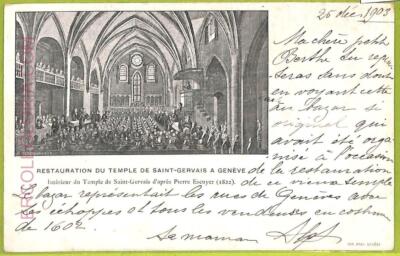 25 déc 1903
Ma chère petite
Berthe tu repen
seras dans dout
en voyant cette
au bazar si
original qui
avait été orga
nisé à l'occasion
RESTAURATION DU TEMPLE DE SAINT-GERVAIS A GENÈVE
Intérieur du Temple de Saint-Gervais d'après Pierre Escuyer (1822).
de la restauration
de ce vieux temple
Le bazar représentait les rues de Genève avec
ses échoppes et tous les vendeuses en costume
de 1602.
Ta maman